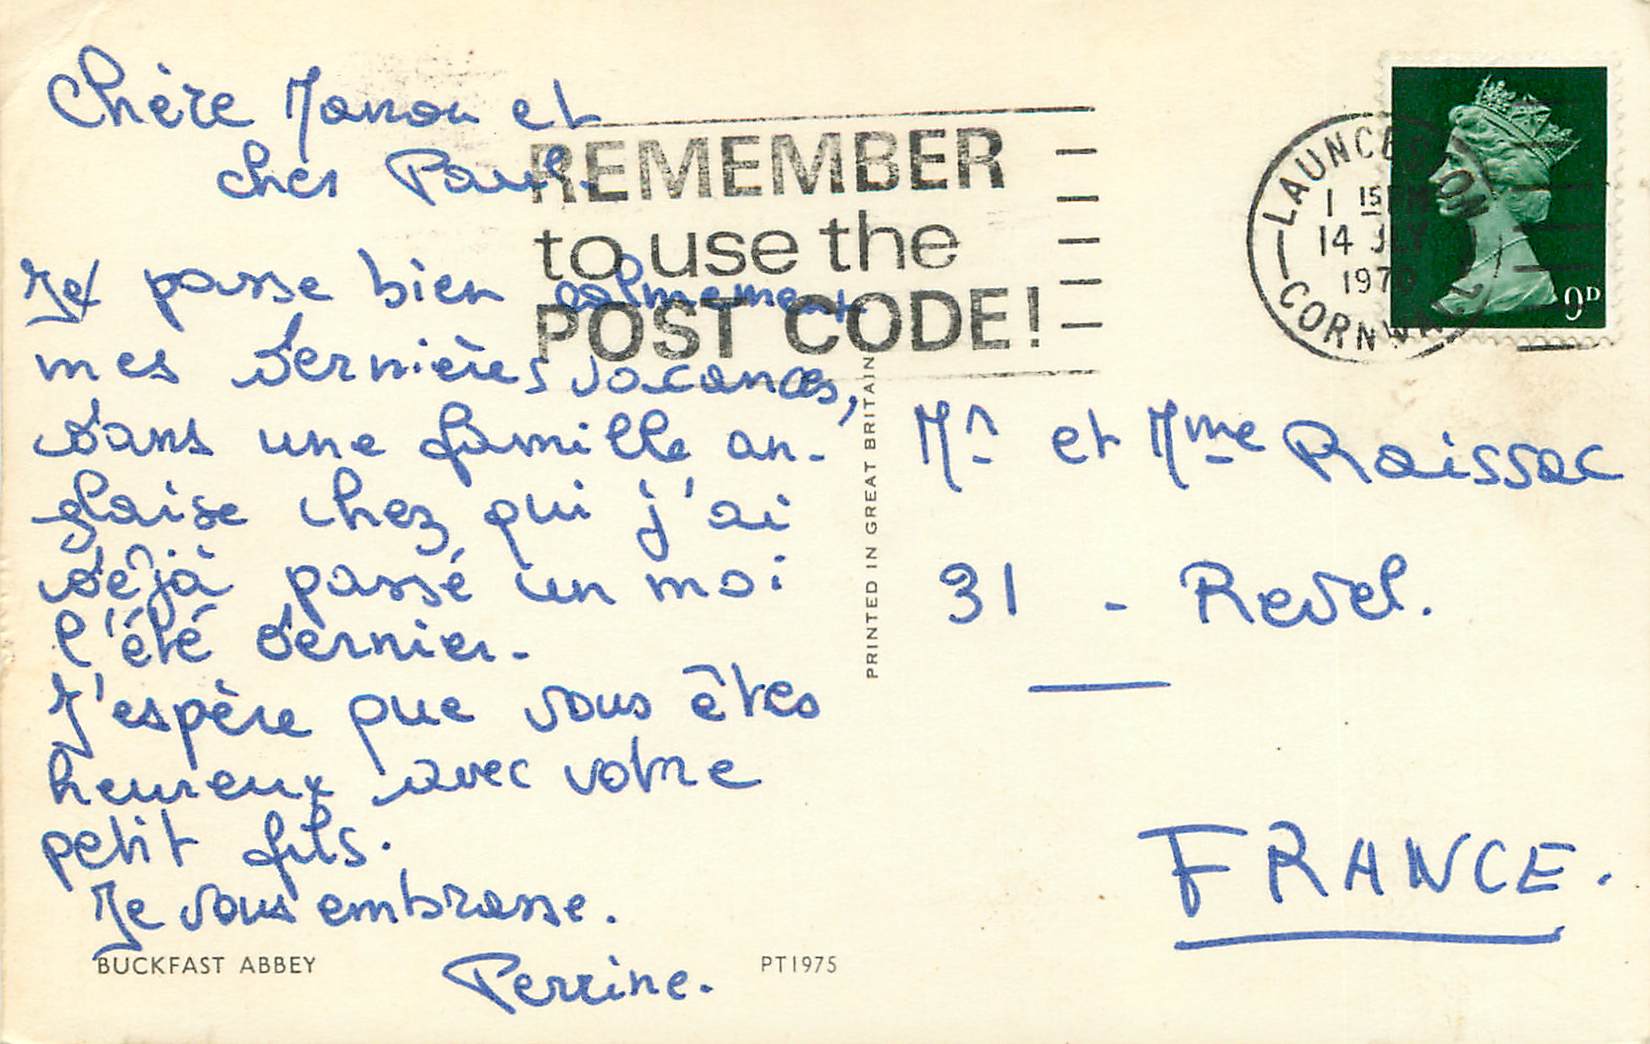 Chère Manou et
cher Paul.
Je passe bien calmement
mes dernières vacances,
dans une famille an-
glaise chez qui j'ai
déjà passé un moi
l'été dernier.
J'espère que vous êtes
heureux avec votre
petit fils.
Je vous embrasse.
Perrine.
BUCKFAST ABBEY
PT1975
PRINTED IN GREAT BRITAIN
REMEMBER
to use the
POST CODE!
LAUNCESTON
1 15 PM
14 JLY
1970
CORNWALL
9D
Mr et Mme Raissac
31 - Revel.
FRANCE.